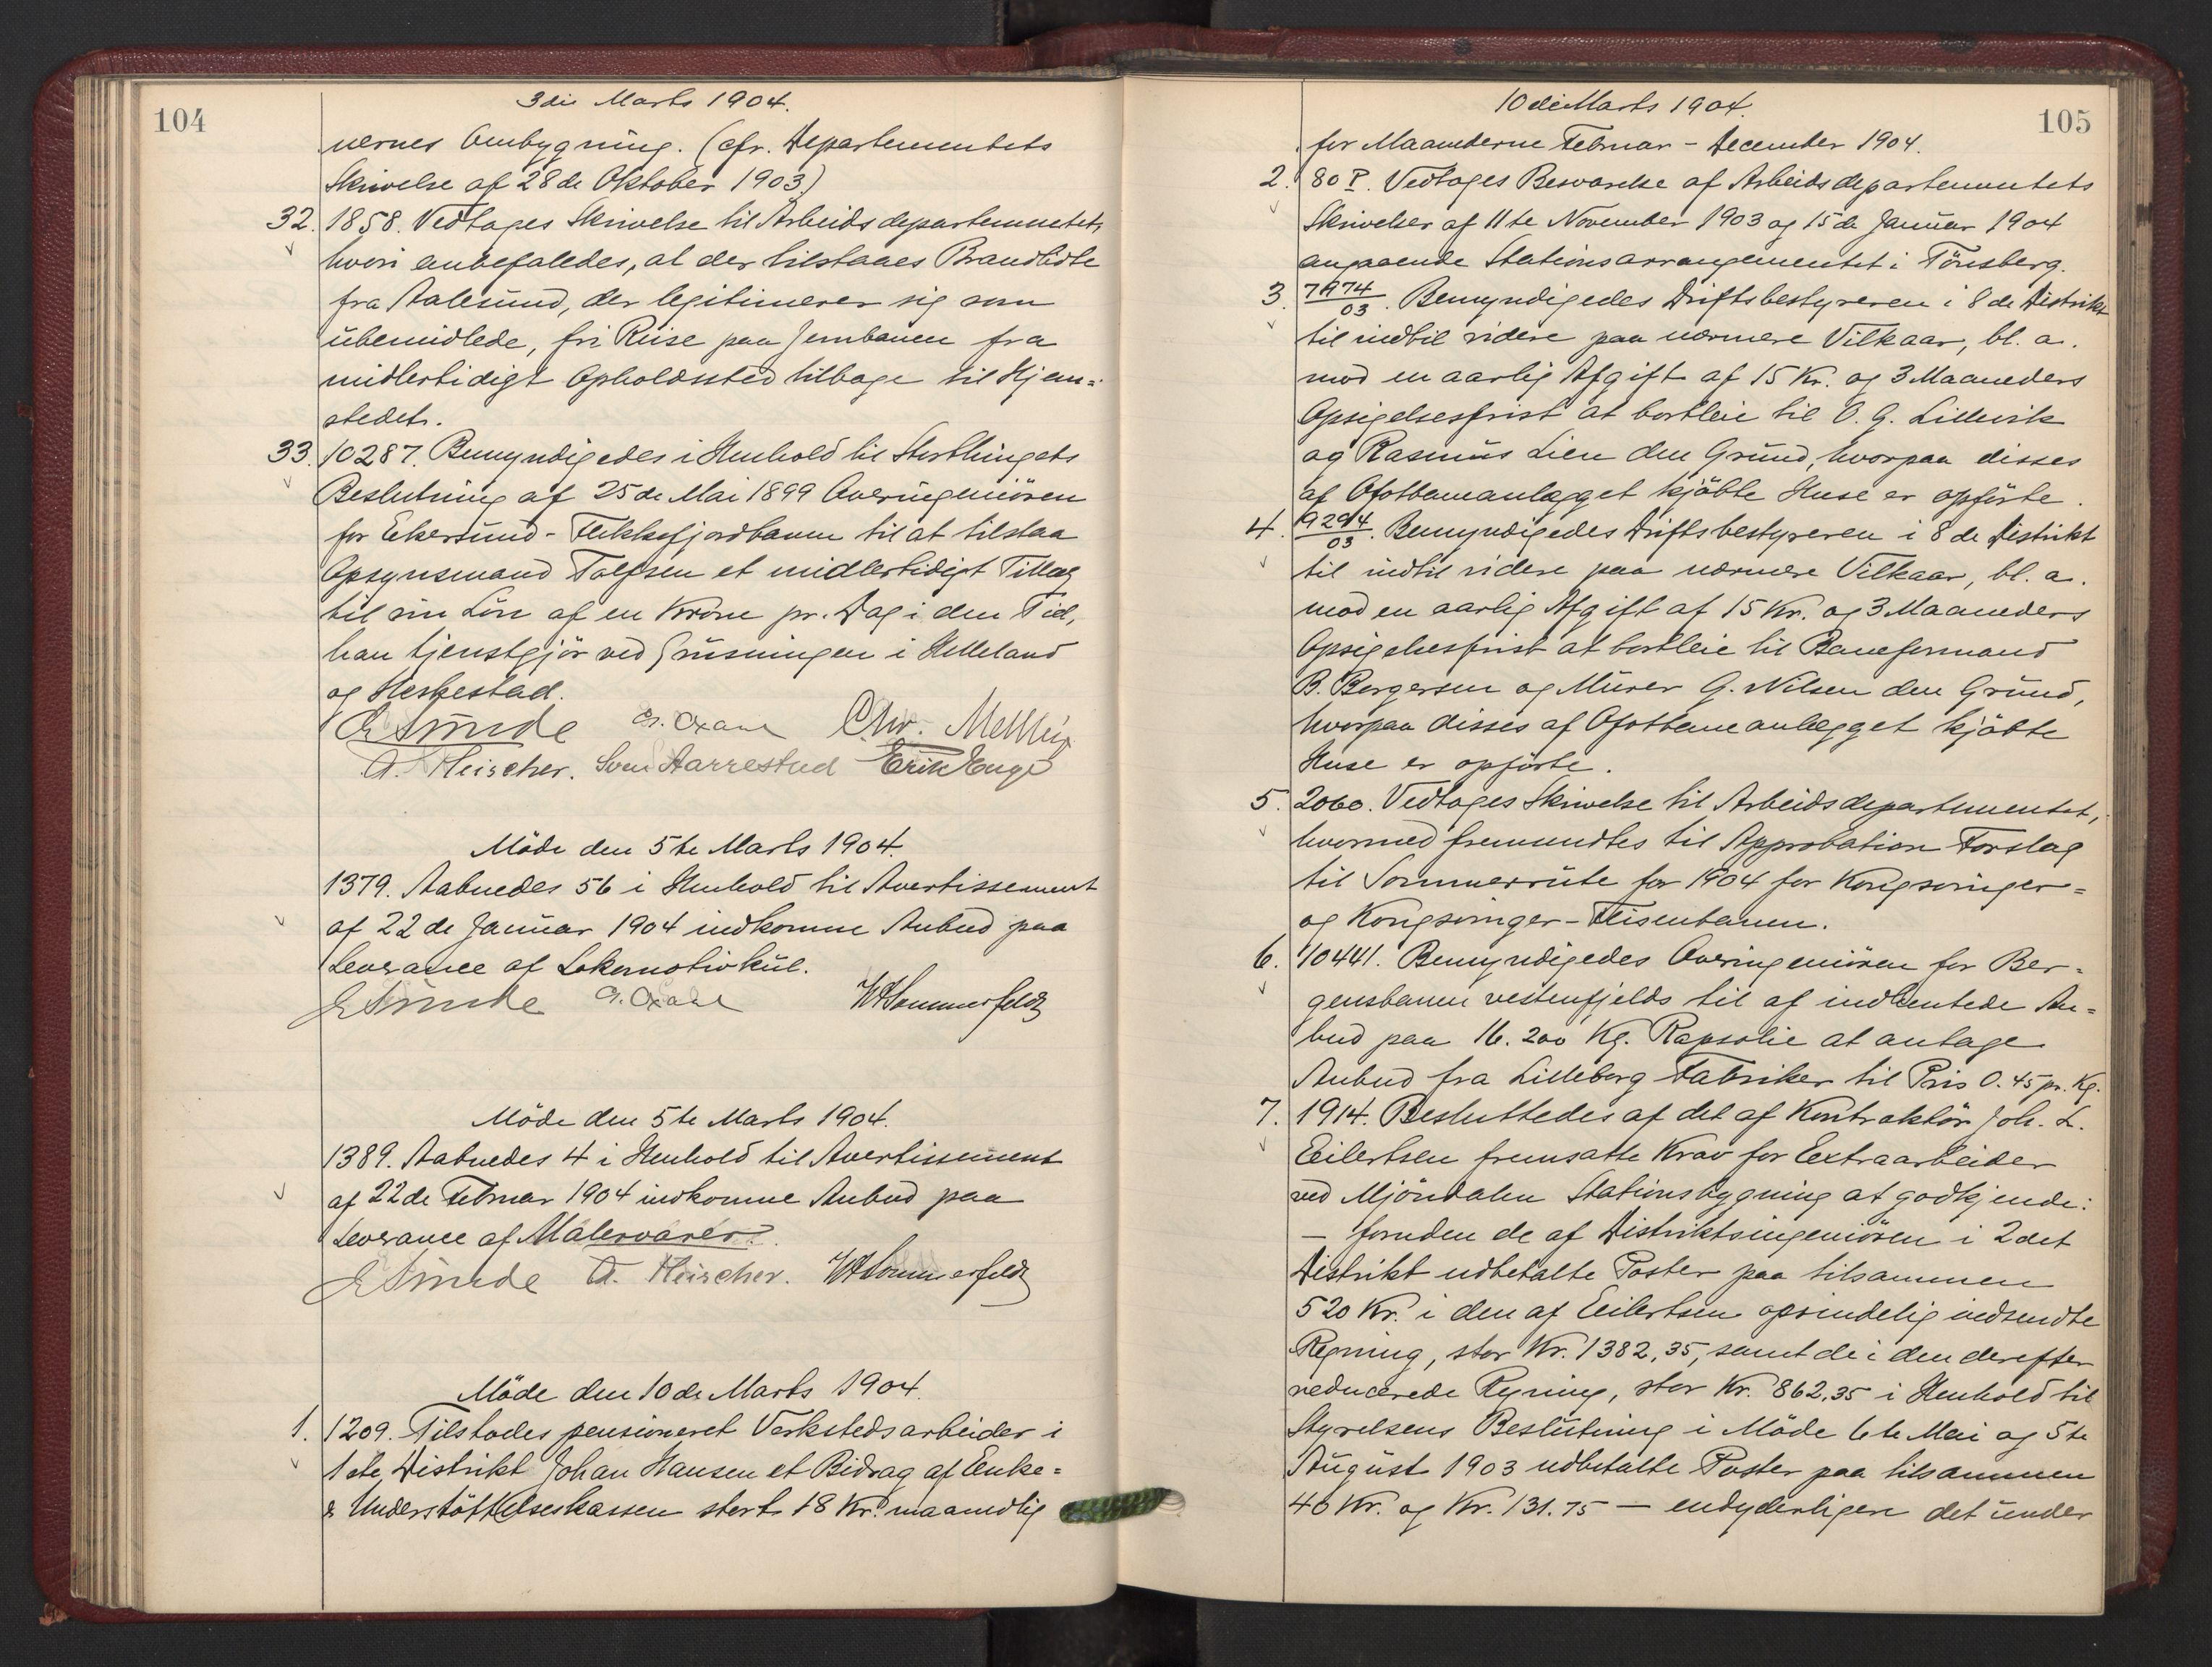 104
3die Marts 1904.
nernes Ombygning. (cfr. Departementets
Skrivelse af 28de Oktober 1903.)
32. 1858. Vedtages Skrivelse til Arbeidsdepartementet,
hvori anbefaledes, at der tilstaaes Brandlidte
fra Aalesund, der legitimerer sig som
ubemidlede, fri Reise paa Jernbanen fra
midlertidigt Opholdssted tilbage til Hjem=
stedet.
33. 10287. Bemyndigedes i Henhold til Storthingets
Beslutning af 25de Mai 1899 Overingeniören
for Ekersund-Flekkefjordbanen til at tilstaa
Opsynsmand Tollefsen et midlertidigt Tillæg
til sin Lön af en Krone pr. Dag i den Tid,
han tjenstgjör ved Grusningen i Helleland
og Heskestad.
E Sunde G. Oxaal Chr. Mellbÿe
A. Fleischer. Sven Aarrestad Erik Enge
Möde den 5te Marts 1904.
1379. Aabnedes 56 i Henhold til Avertissement
af 22de Januar 1904 indkomne Anbud paa
Leverance af Lokomotivkul.
E Sunde G. Oxaal W Sommerfeldt
Möde den 5te Marts 1904.
1389. Aabnedes 4 i Henhold til Avertissement
af 22de Februar 1904 indkomne Anbud paa
Leverance af Malervarer.
E Sunde A. Fleischer. W Sommerfeldt
Möde den 10de Marts 1904.
1. 1209. Tilstodes pensioneret Verkstedsarbeider i
1ste Distrikt Johan Hansen et Bidrag af Enke=
& Understöttelseskassen stort 18 Kr. maanedlig
105
10de Marts 1904.
for Maanederne Februar - December 1904.
2. 80 P. Vedtages Besvarelse af Arbeidsdepartementets
Skrivelser af 11te November 1903 og 15de Januar 1904
angaaende Stationsarrangementet i Tönsberg.
3. 7974/03. Bemyndigedes Driftsbestyreren i 8de Distrikt
til indtil videre paa nærmere Vilkaar, bl. a.
mod en aarlig Afgift af 15 Kr. og 3 Maaneders
Opsigelsesfrist at bortleie til O. G. Lillevik
og Rasmus Lien den Grund, hvorpaa disses
af Ofotbaneanlægget kjöbte Huse er opförte.
4. 9294/03. Bemyndigedes Driftsbestyreren i 8de Distrikt
til indtil videre paa nærmere Vilkaar, bl. a.
mod en aarlig Afgift af 15 Kr. og 3 Maaneders
Opsigelsesfrist at bortleie til Baneformand
B. Bergersen og Murer G. Nilsen den Grund,
hvorpaa disses af Ofotbaneanlægget kjöbte
Huse er opförte.
5. 2060. Vedtages Skrivelse til Arbeidsdepartementet,
hvormed fremsendtes til Approbation Forslag
til Sommerrute for 1904 for Kongsvinger=
og Kongsvinger-Flisenbanen.
6. 10441. Bemyndigedes Overingeniören for Ber=
gensbanen vestenfjelds til af indhentede An=
bud paa 16.200 Kg. Rapsolie at antage
Anbud fra Lilleborg Fabriker til Pris 0.45 pr. Kg.
7. 1914. Besluttedes af det af Kontraktör Joh. L.
Eilertsen fremsatte Krav for Extraarbeider
ved Mjöndalen Stationsbygning at godkjende:
— foruden de af Distriktsingeniören i 2det
Distrikt udbetalte Poster paa tilsammen
520 Kr. i den af Eilertsen oprindelig indsendte
Regning, stor Kr. 1382,35, samt de i den derefter
reducerede Regning, stor Kr. 862,35 i Henhold til
Styrelsens Beslutning i Möde 6te Mai og 5te
August 1903 udbetalte Poster paa tilsammen
40 Kr. og Kr. 131.75 — endyderligere det under